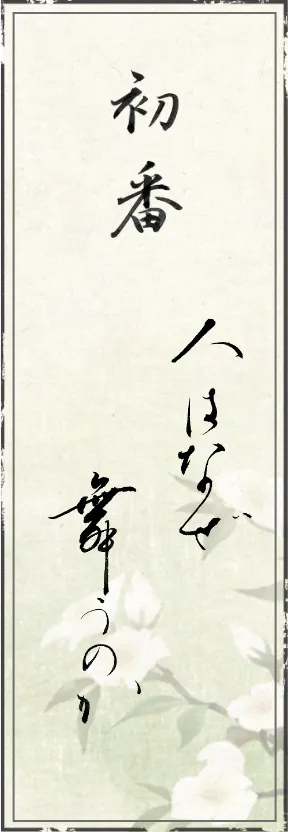 初番
人はなぜ
舞うのか